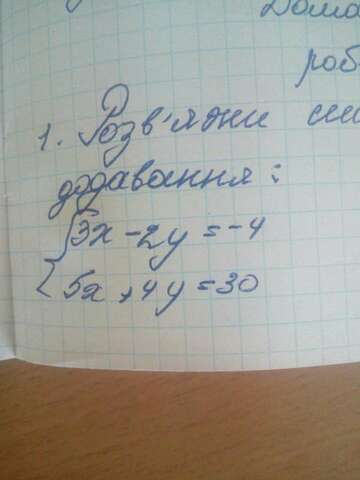 Дома
роб
1. Розв'яжи сис
додавання:
3x - 2y = -4
5x + 4y = 30